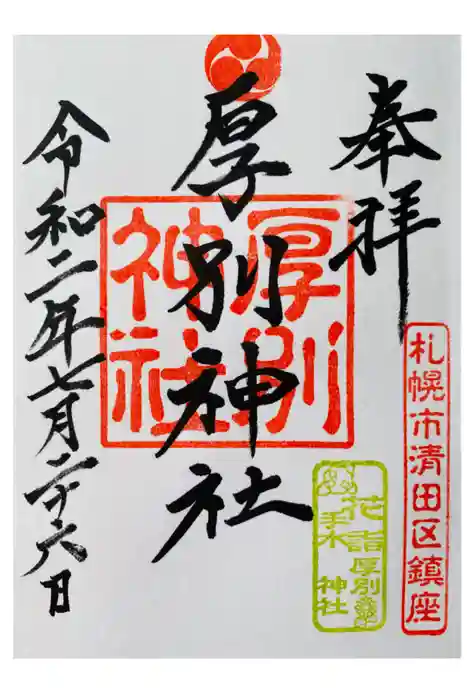 奉拝
札幌市清田区鎮座
厚別神社
厚別
神社
花詣
手水
厚別
神社
令和二年七月二十六日